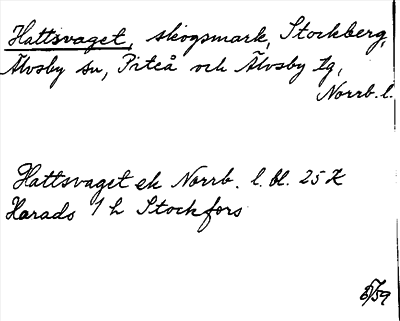 Hattsvaget, skogsmark, Stockberg,
Älvsby sn, Piteå och Älvsby tg,
Norrb. l.
Hattsvaget ek Norrb. l. bl. 25 K
Harads 1 h Stockfors
5/59